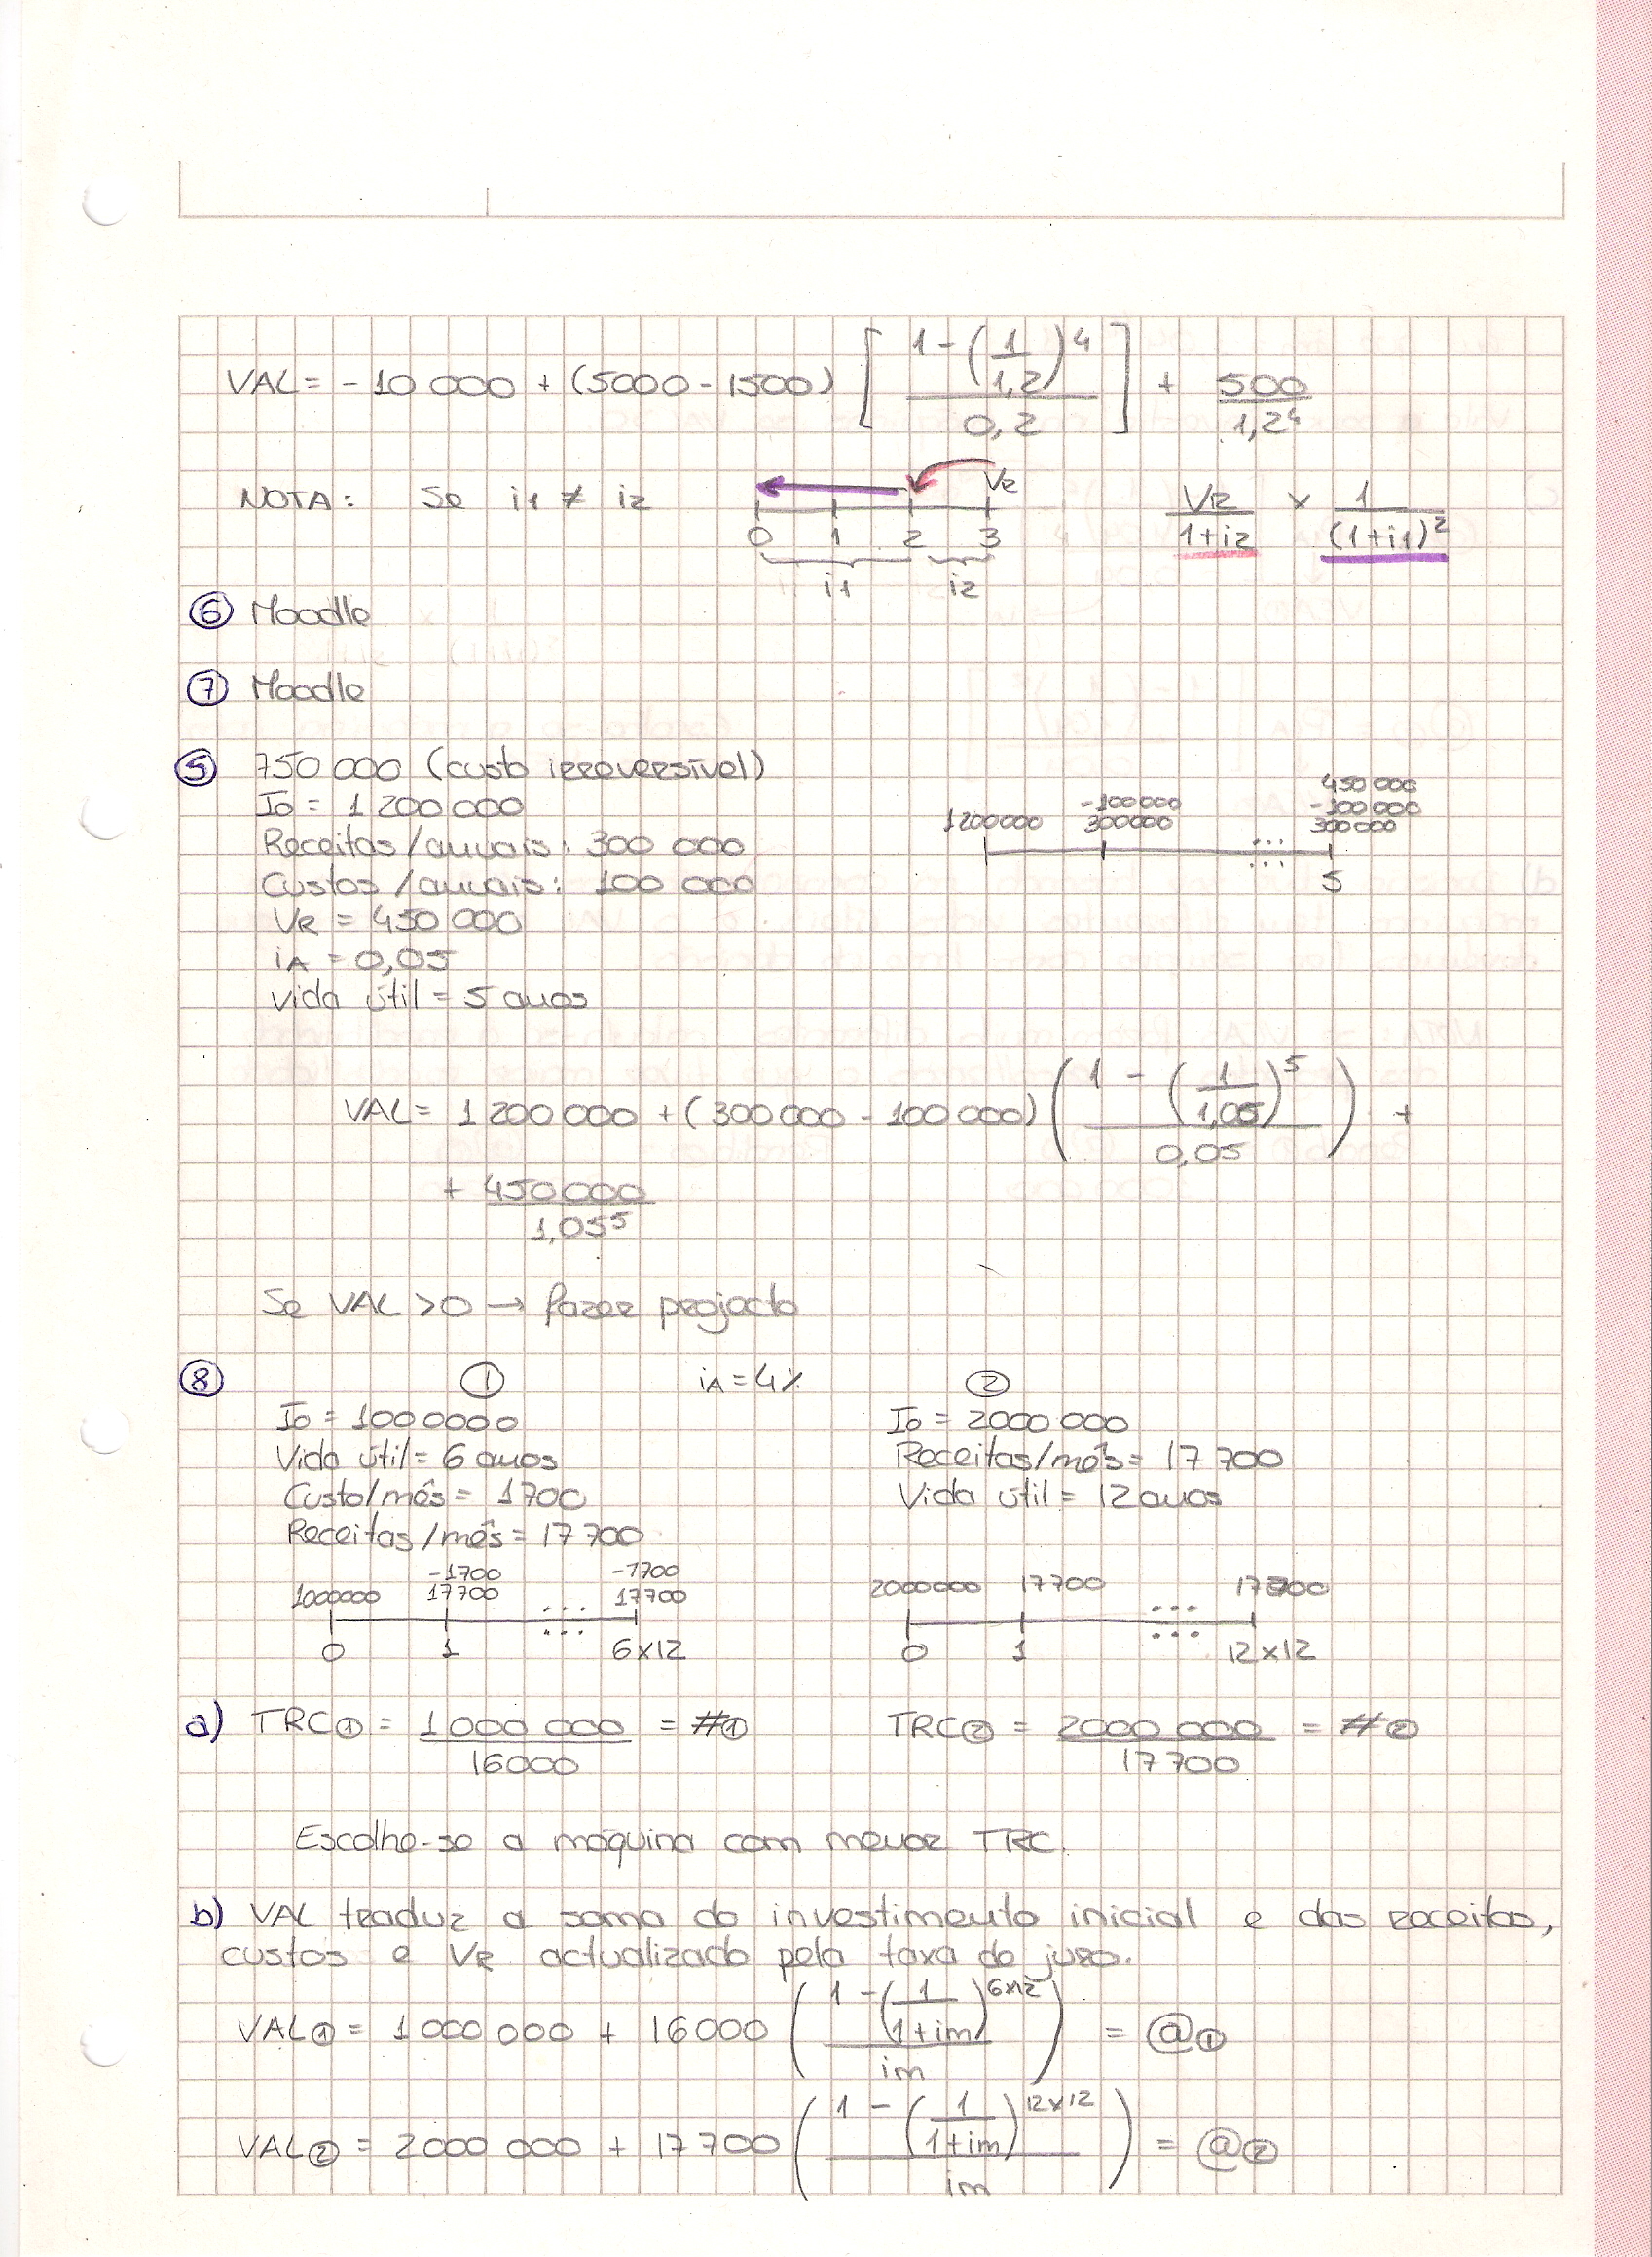 VAL = - 10 000 + (5000 - 1500) [ (1 - (1/1,2)^4) / 0,2 ] + 500 / 1,2^4
NOTA: Se i1 ≠ i2
VR
0 1 2 3
i1 i2
VR / (1+i2) × 1 / (1+i1)^2
⑥ Moodle
⑦ Moodle
⑤ 750 000 (custo irreversível)
I0 = 1 200 000
Receitas/anuais: 300 000
Custos/anuais: 100 000
VR = 450 000
iA = 0,05
vida útil = 5 anos
1200000
-100000
300000
...
450 000
-100 000
300 000
5
VAL = 1 200 000 + (300 000 - 100 000) ( (1 - (1/1,05)^5) / 0,05 ) +
+ 450 000 / 1,05^5
Se VAL > 0 → fazer projecto
⑧ ① iA = 4% ②
I0 = 1000000
Vida útil = 6 anos
Custo/mês = 1700
Receitas/mês = 17 700
1000000
-1700
17700
...
-1700
17700
0 1 6x12
I0 = 2000 000
Receitas/mês = 17 700
Vida útil = 12 anos
2000000 17700 ... 17700
0 1 12x12
a) TRC① = 1 000 000 / 16000 = #① TRC② = 2000 000 / 17 700 = #②
Escolhe-se a máquina com menor TRC.
b) VAL traduz a soma do investimento inicial e das receitas,
custos e VR actualizado pela taxa de juro.
VAL① = 1 000 000 + 16000 ( (1 - (1/(1+im))^6x12) / im ) = @①
VAL② = 2000 000 + 17 700 ( (1 - (1/(1+im))^12x12) / im ) = @②